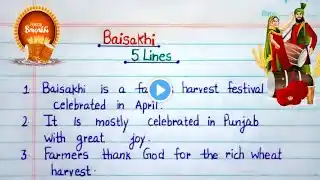 Happy
Baisakhi
Baisakhi
5 Lines
1. Baisakhi is a harvest festival
celebrated in April.
2. It is mostly celebrated in Punjab
with great joy.
3. Farmers thank God for the rich wheat
harvest.